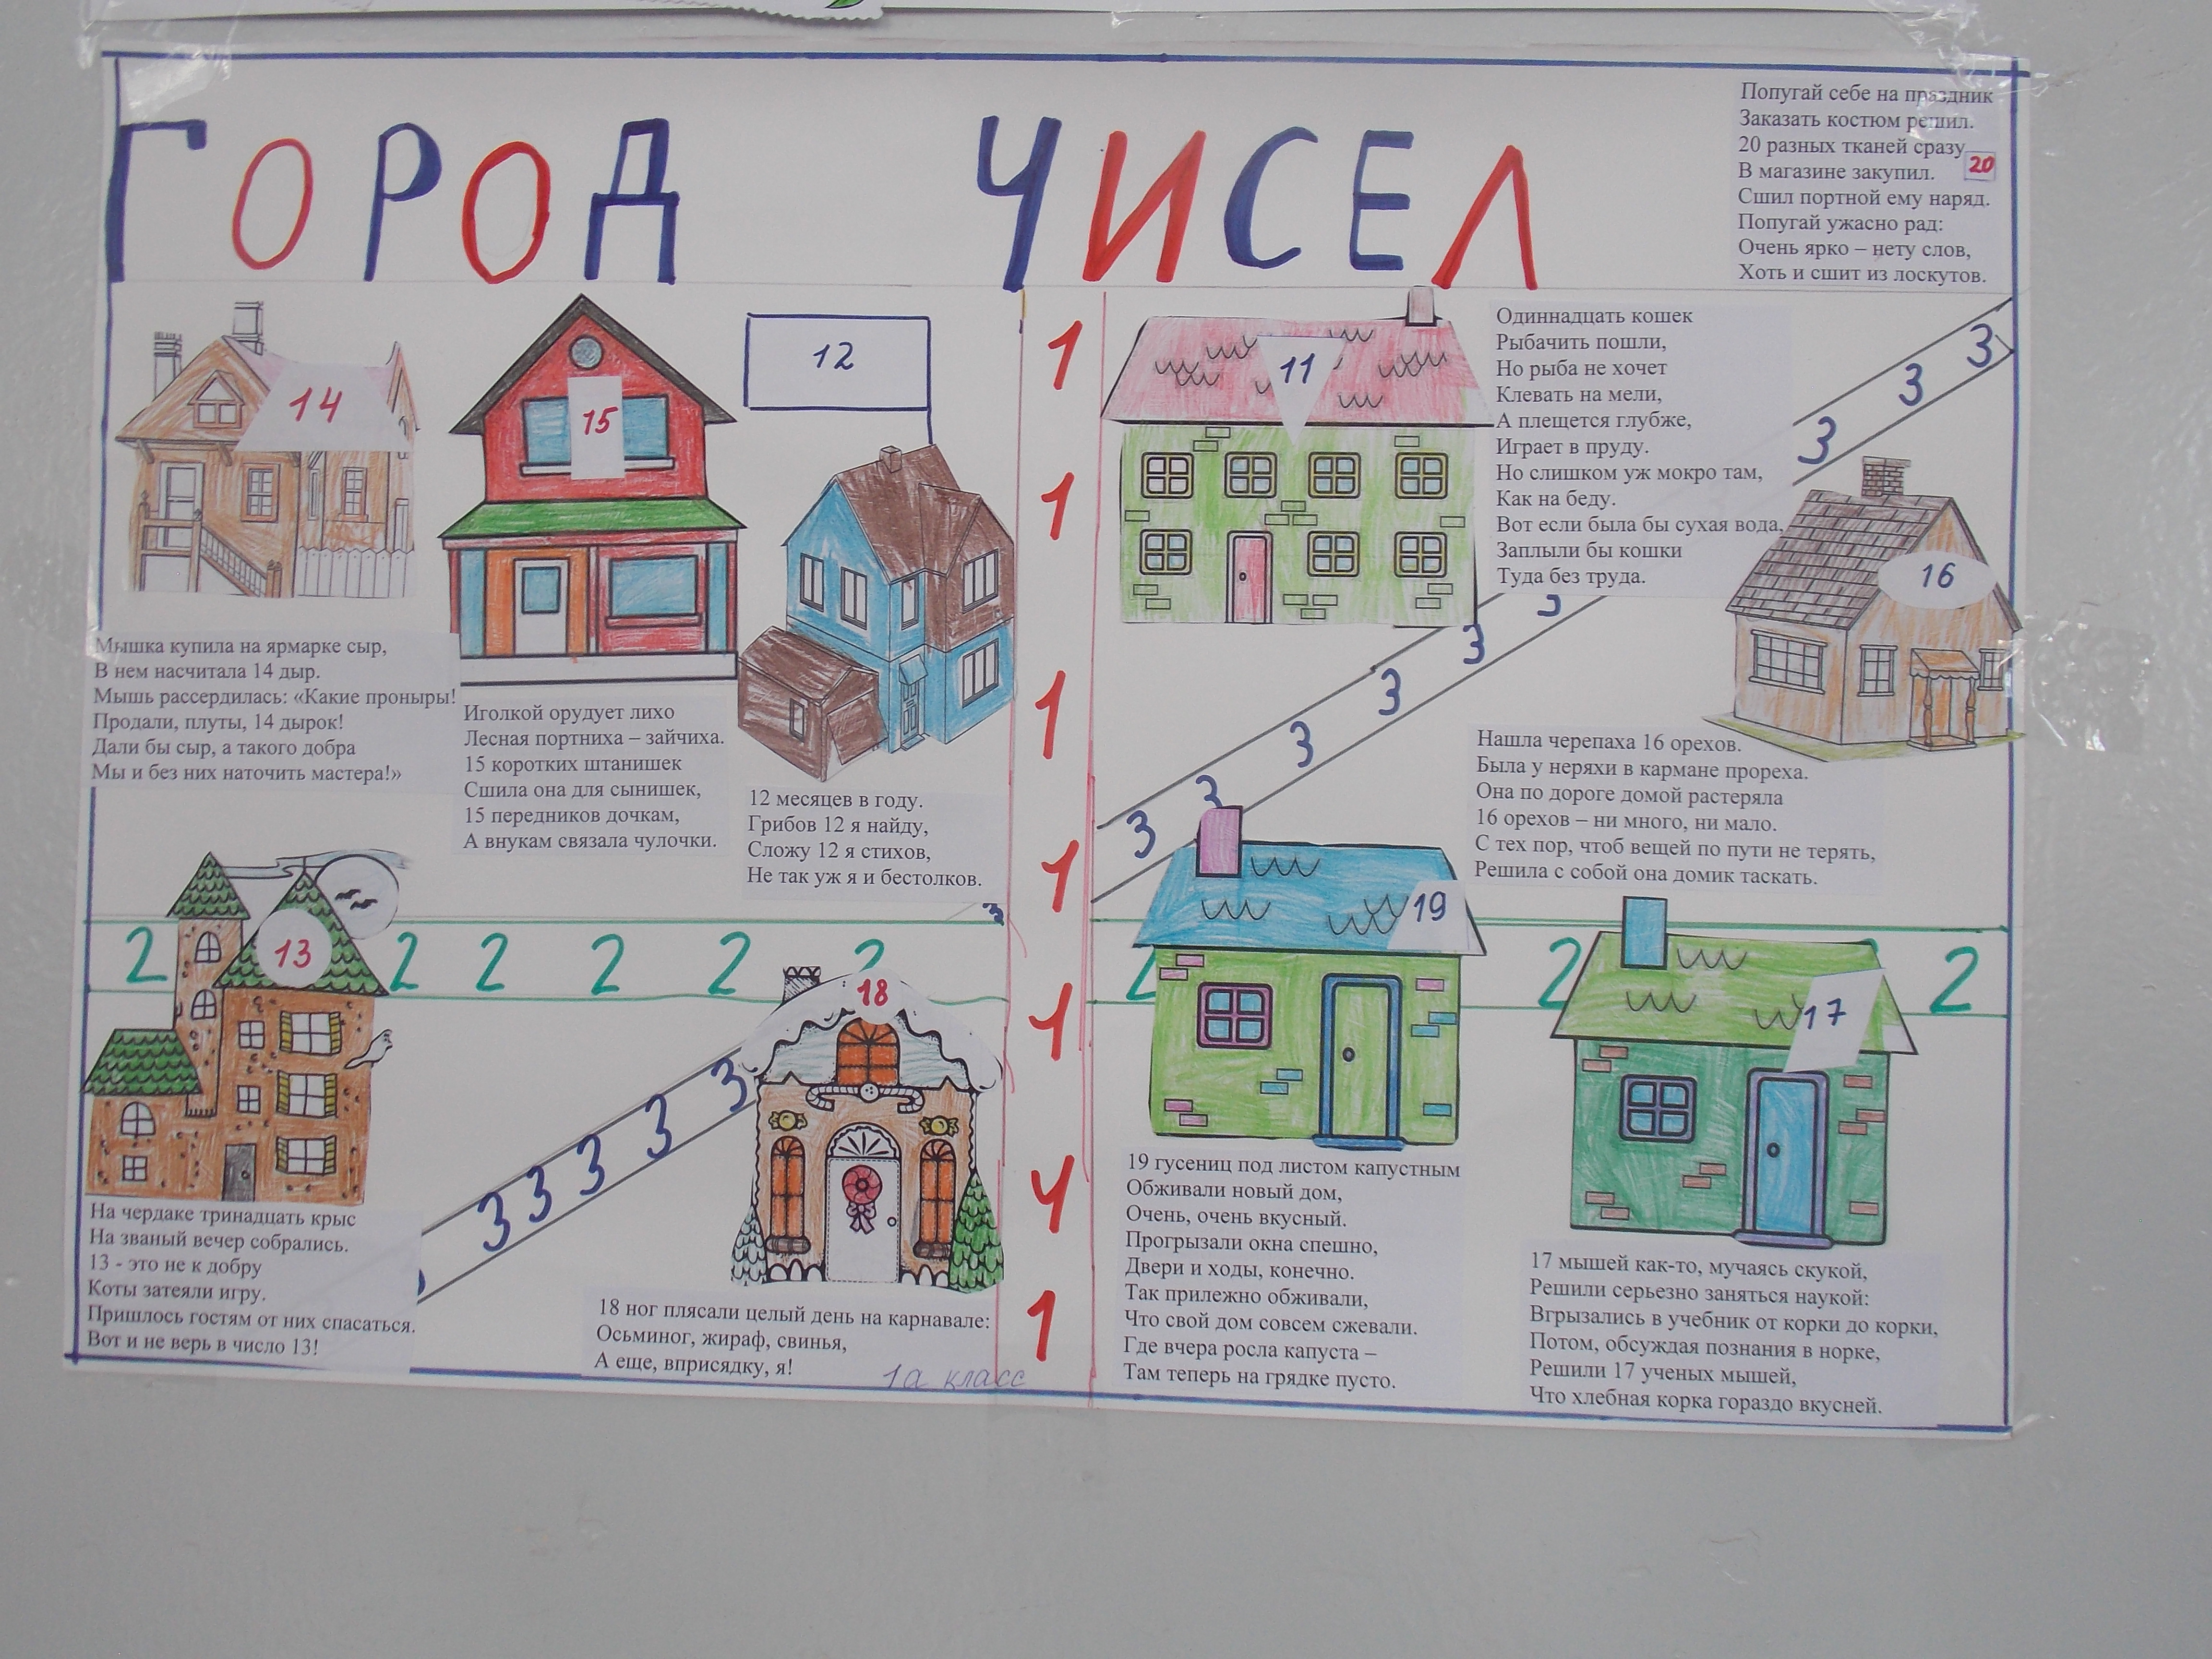 ГОРОД ЧИСЕЛ
Попугай себе на праздник
Заказать костюм решил.
20 разных тканей сразу
В магазине закупил.
Сшил портной ему наряд.
Попугай ужасно рад:
Очень ярко – нету слов,
Хоть и сшит из лоскутов.
20
14
Мышка купила на ярмарке сыр,
В нем насчитала 14 дыр.
Мышь рассердилась: «Какие проныры!
Продали, плуты, 14 дырок!
Дали бы сыр, а такого добра
Мы и без них наточить мастера!»
15
Иголкой орудует лихо
Лесная портниха – зайчиха.
15 коротких штанишек
Сшила она для сынишек,
15 передников дочкам,
А внукам связала чулочки.
12
12 месяцев в году.
Грибов 12 я найду,
Сложу 12 я стихов,
Не так уж я и бестолков.
1
1
1
1
1
1
1
11
Одиннадцать кошек
Рыбачить пошли,
Но рыба не хочет
Клевать на мели,
А плещется глубже,
Играет в пруду.
Но слишком уж мокро там,
Как на беду.
Вот если была бы сухая вода,
Заплыли бы кошки
Туда без труда.
3 3 3 3 3 3 3 3 3
16
Нашла черепаха 16 орехов.
Была у неряхи в кармане прореха.
Она по дороге домой растеряла
16 орехов – ни много, ни мало.
С тех пор, чтоб вещей по пути не терять,
Решила с собой она домик таскать.
2 2 2 2 2 2 2 2 2
13
На чердаке тринадцать крыс
На званый вечер собрались.
13 - это не к добру
Коты затеяли игру.
Пришлось гостям от них спасаться.
Вот и не верь в число 13!
3 3 3 3 3 3
18
18 ног плясали целый день на карнавале:
Осьминог, жираф, свинья,
А еще, вприсядку, я!
1а класс
19
19 гусениц под листом капустным
Обживали новый дом,
Очень, очень вкусный.
Прогрызали окна спешно,
Двери и ходы, конечно.
Так прилежно обживали,
Что свой дом совсем сжевали.
Где вчера росла капуста –
Там теперь на грядке пусто.
17
17 мышей как-то, мучаясь скукой,
Решили серьезно заняться наукой:
Вгрызались в учебник от корки до корки,
Потом, обсуждая познания в норке,
Решили 17 ученых мышей,
Что хлебная корка гораздо вкусней.